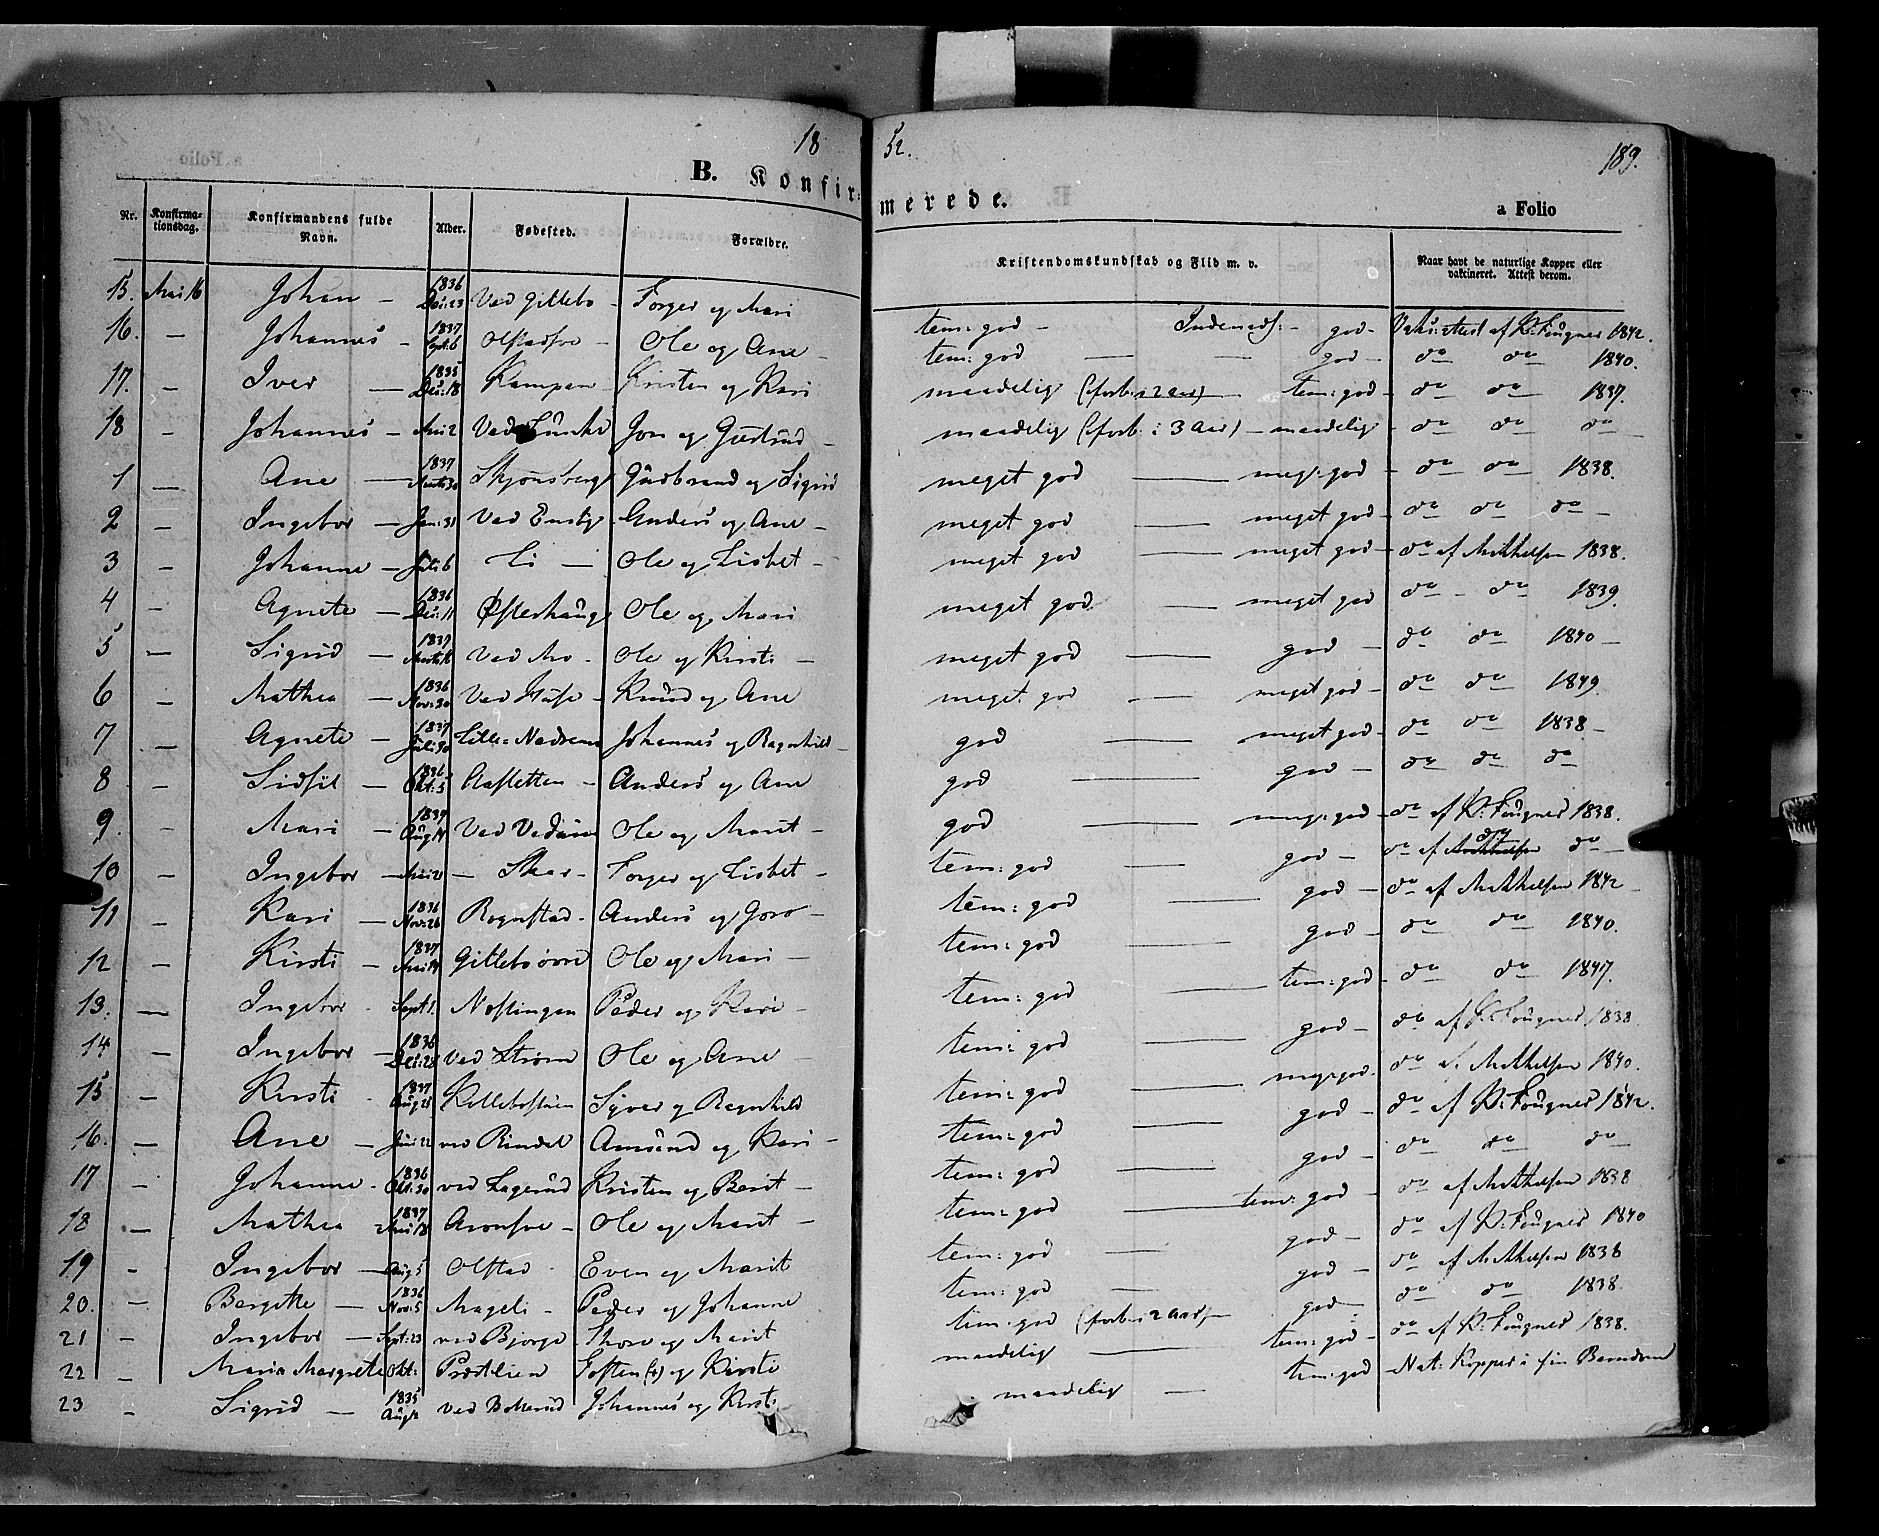 18 52. 189.
B. Konfir= merede. a Folio
Nr. Konfirma-tionsdag. Konfirmandens fulde Navn. Alder. Fødested. Forældre. Kristendomskundskab og Flid m. v. Naar havt de naturlige Kopper eller vakcineret. Attest derom.
15. Mai 16 Johan — 1836 Dec: 23 Ved Gillebo — Torger og Mari tem: god — god — Vaks: attest af P. Fougner 1842.
16. — Johannes — 1837 Sept: 6 Olstadsve — Ole og Ane — tem: god — god — do do 1840.
17. — Iver — 1835 Dec: 18 Kampen — Kristen og Kari maadelig (forb: i 2 Aar) — tem: god — do do 1837.
18 — Johannes — Mai 2 Ved Jon og Gudrud — maadelig (forb: i 3 Aar) — maadelig — do do do
1 — Ane — 1837 Marts 30 Skjønsberg Gudbrand og Sigrid meget god — meg: god — do do 1838.
2 — Ingebor — Jan: 31 Ved Enstige Anders og Ane — meget god — meget god — do do do —
3 — Johanne — 6 Li — Ole og Lisbet — meget god — meget god — do af Mikkelsen 1838.
4 — Agnete — 1836 Dec: 11 Østerhaug Ole og Mari meget god — meget god do — do 1839.
5 — Sigrid — 1837 Ved Mo — Ole og Kirsti — meget god — god — do do 1840 —
6 — Mathea — 1836 Nov: 30 Ved — Knud og Ane meget god — meget god — do do 1849.
7 — Agnete — 1837 Juli 30 Lille= Johannes og Ragnhild — god — meget god — do do 1838 —
8 — Sidsel — 1836 Okt: 5 Aasletten — Anders og Ane god — god — do do do
9. — Mari — Aug 14 Ved Ole og Marit — god — meg: god — do af P. Fougner 1838.
10 — Ingebor — Mai 21 — Skar — Torger og Lisbet — tem: god — god — do af do —
11 — Kari — 1836 Nov: 26 Rognstad — Anders og Goro — tem: god — god — do af Mikkelsen 1842 —
12 — Kirsti — 1837 Mai 14 Gillebo øvre Ole og Mari — tem: god — god — do do 1840.
13. — Ingebor — Sept 1. Peder og Kari — tem: god — tem: god — do do 1847.
14 — Ingebor — 1836 Dec: 28 ved Strøm Ole og Ane — tem: god — god — do af P. Fougner 1838.
15 — Kirsti — 1837 Aug 25 Syver og Ragnhild tem: god — meg: god — do af Mikkelsen 1840.
16. — Ane — Juni 22 ved Rindal Amund og Kari — tem: god — god — do af P. Fougner 1842.
17 — Johanne — 1836 Okt: 30 ved Lagerud Kristen og Berit — tem: god — god — do do do
18 — Mathea — 1837 Mai 18 Aronsve — Ole og Marit — tem: god — tem: god — do af Mikkelsen 1838
19 — Ingebor — Aug 5 Olstad — Even og Marit tem: god — god — do af P. Fougner 1840
20. — Bergitte — 1836 Nov: 5 Mageli — Peder og Johanne tem: god — god — do af Mikkelsen 1838
21 — Ingebor — Sept: 23 ved Bjørge Thore og Marit tem: god (forb: i 2 Aar) — god — do do 1838.
22 — Maria Margrete Okt: Prestlien Tosten (+) og Kirsti maadelig — tem: god — do af P. Fougner 1838.
23 — Sigrid — 1835 Aug 2 ved Bakerud Johannes og Kirsti maadelig — tem: god — Nat: Kopper i sin Barndom